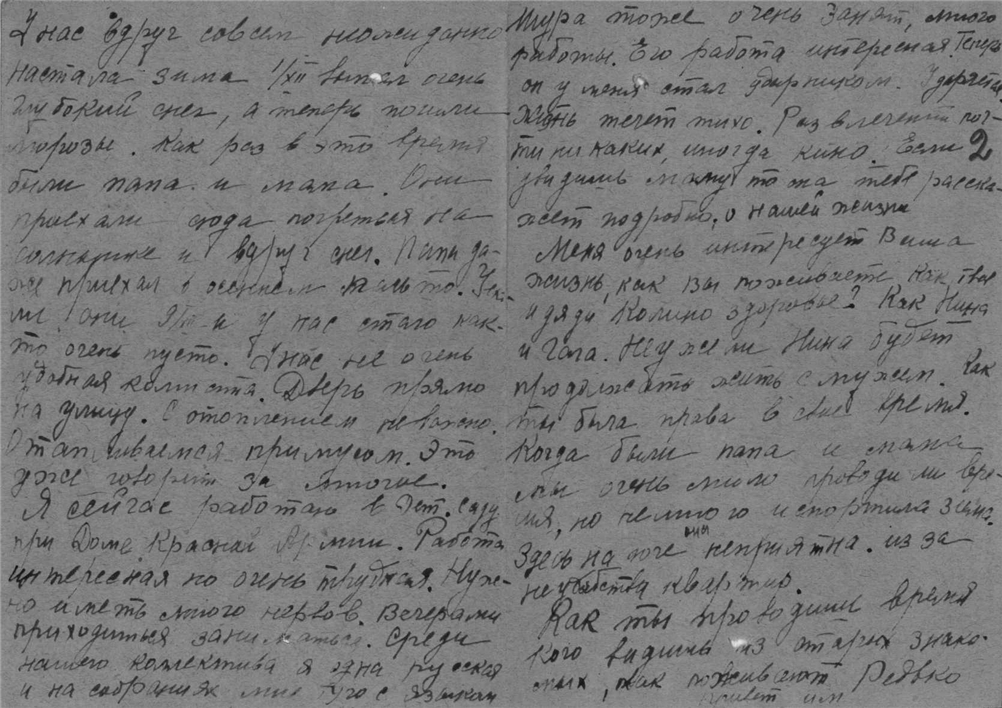 У нас вдруг совсем неожиданно
настала зима 1/XII выпал очень
глубокий снег, а теперь пошли
морозы. Как раз в это время
были папа и мама. Они
приехали сюда погреться на
солнышке и вдруг снег. Папа да-
же приехал в осеннем пальто. Уех-
ли они и у нас стало как-
то очень пусто. У нас не очень
удобная комната. Дверь прямо
на улицу. С отоплением неважно.
Отапливаемся примусом. Это
уже говорит за многое.
Я сейчас работаю в Дет. саду
при Доме Красной Армии. Работа
интересная но очень трудная. Нуж-
но иметь много нервов. Вечерами
приходиться заниматься. Среди
нашего коллектива я одна русская
и на собраниях мне туго с языком
Шура тоже очень занят, много
работы. Его работа интересная. Теперь
он у меня стал ударником.
Жизнь течет тихо. Развлечений поч-
ти никаких, иногда кино. Если 2
увидишь маму то она тебе расска-
жет подробно, о нашей жизни
Меня очень интресует Ваша
жизнь, как вы поживаете как твое
и дяди Колино здоровье? Как Нина
и Гога. Неужели Нина будет
продолжать жить с мужем. Как
ты была права в свое время.
Когда были папа и мама
мы очень мило проводили вре-
мя, но немного испортила зима.
Здесь на юге она неприятна. из за
неудобства квартир.
Как ты проводишь время
кого видишь из старых знако-
мых, как поживают Редько
привет им